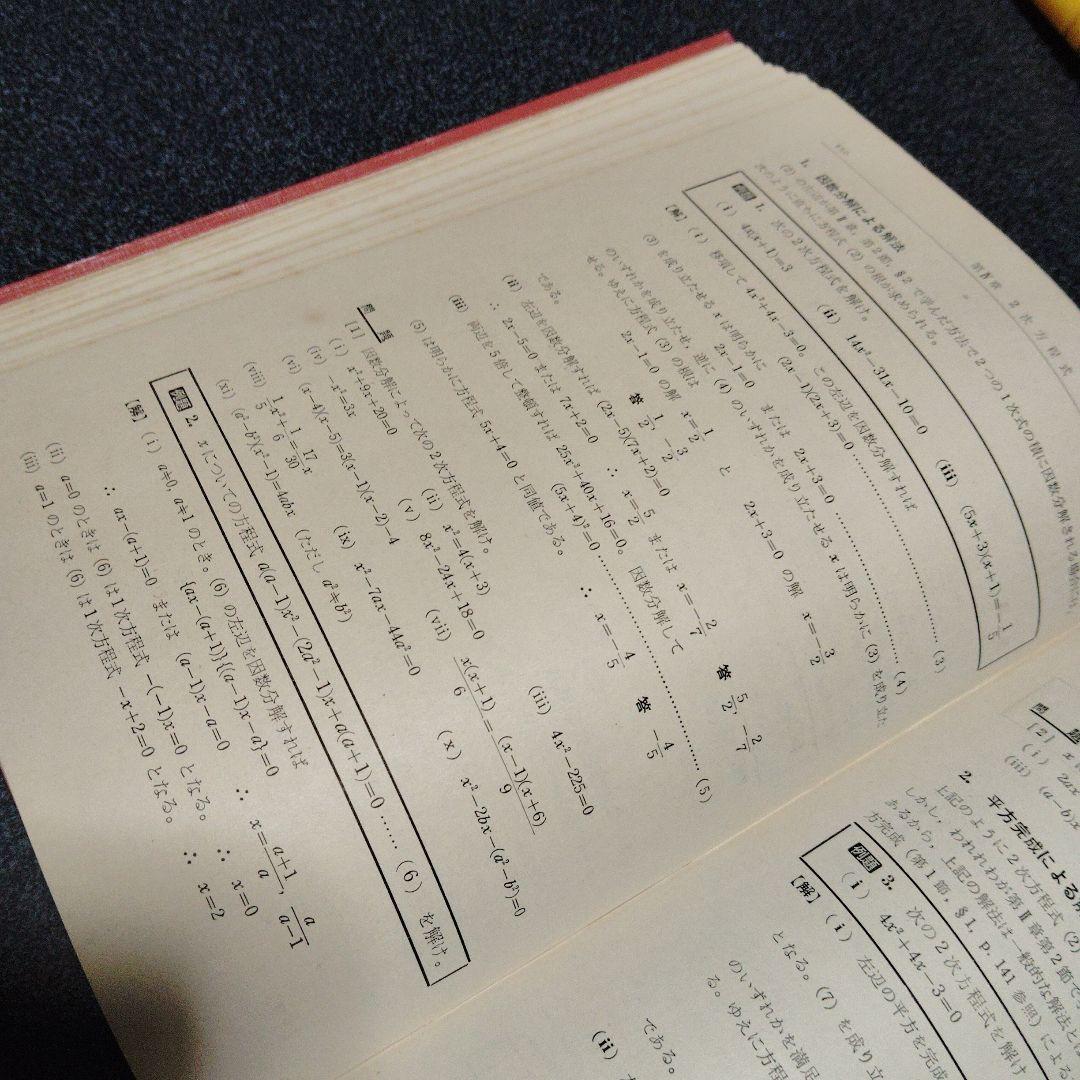 第Ⅳ章 2 次 方 程 式
1. 因数分解による解法
(2) の左辺が第Ⅱ章, 第2節, §2で学んだ方法で2つの1次式の積に因数分解される場合には,
次のように直ちに方程式 (2) の根が求められる。
例題 1. 次の2次方程式を解け。
(i) 4x(x+1)=3 (ii) 14x²-31x-10=0 (iii) (5x+3)(x+1)=-1/5
[解] (i) 移項して 4x²+4x-3=0。 この左辺を因数分解すれば
(2x-1)(2x+3)=0 ………… (3)
(3) を成り立たせる x は明らかに 2x-1=0 または 2x+3=0 ………… (4)
のいずれかを成り立たせ, 逆に (4) のいずれかを成り立たせる x は明らかに (3) を成り立た
せる。ゆえに方程式 (3) の根は
2x-1=0 の解 x=1/2 と 2x+3=0 の解 x=-3/2
である。 答 1/2, -3/2
(ii) 左辺を因数分解すれば (2x-5)(7x+2)=0
∴ 2x-5=0 または 7x+2=0 ∴ x=5/2 または x=-2/7 答 5/2, -2/7
(iii) 両辺を5倍して整頓すれば 25x²+40x+16=0。 因数分解して
(5x+4)²=0 ………… (5)
(5) は明らかに方程式 5x+4=0 と同値である。 ∴ x=-4/5 答 -4/5
問 題
[1] 因数分解によって次の2次方程式を解け。
(i) x²+9x+20=0 (ii) x²=4(x+3) (iii) 4x²-225=0
(iv) -x²=3x (v) 8x²-24x+18=0
(vi) (x-4)(x-5)=3(x-1)(x-2)-4 (vii) x(x+1)/6=(x-1)(x+6)/9
(viii) 1/5x²+1/6=17/30x (ix) x²-7ax-44a²=0 (x) x²-2bx-(a²-b²)=0
(xi) (a²-b²)(x²-1)=4abx (ただし a²≠b²)
例題 2. x についての方程式 a(a-1)x²-(2a²-1)x+a(a+1)=0 …… (6) を解け。
[解] (i) a≠0, a≠1 のとき。(6) の左辺を因数分解すれば
{ax-(a+1)}{(a-1)x-a}=0
∴ ax-(a+1)=0 または (a-1)x-a=0 ∴ x=(a+1)/a, a/(a-1)
(ii) a=0 のときは (6) は1次方程式 -(-1)x=0 となる。 ∴ x=0
(iii) a=1 のときは (6) は1次方程式 -x+2=0 となる。 ∴ x=2
問 題
[2] x
(i) 2ax
(iii) (a-b)x
2. 平方完成による解
上記のように2次方程式 (2)
しかし, われわれが第Ⅱ章第2節で
あるから, 上記の解法は一般的な解法とは
方完成 (第1節, §1, p. 141 参照) による
例題 3. 次の2次方程式を解け
(i) 4x²+4x-3=0
[解] (i) 左辺の平方を完成
となる。(7) を成り立
のいずれかを満足
る。ゆえに方程
である。
(ii)